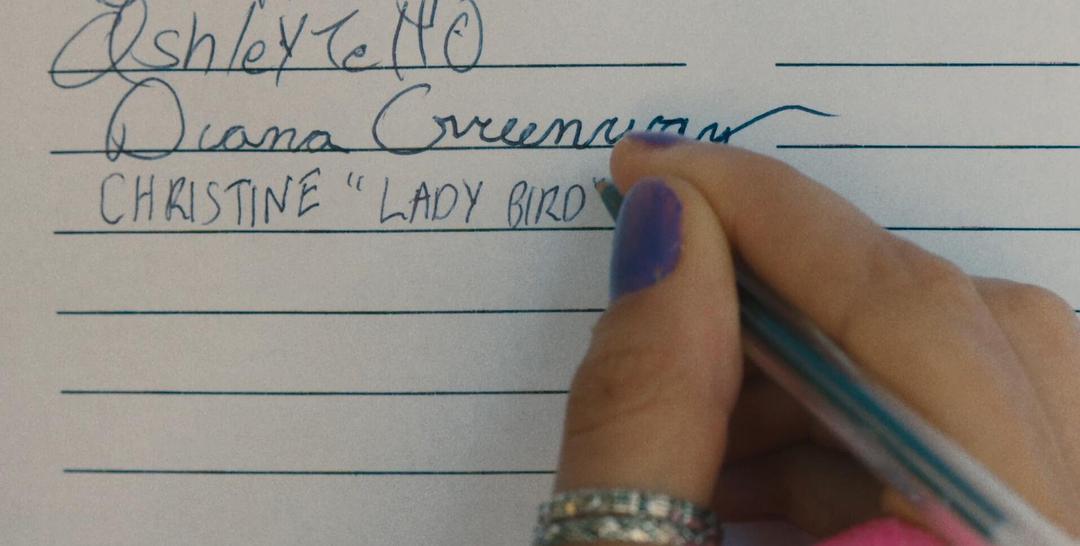 Ashley Tello
Diana Greenway
CHRISTINE "LADY BIRD"